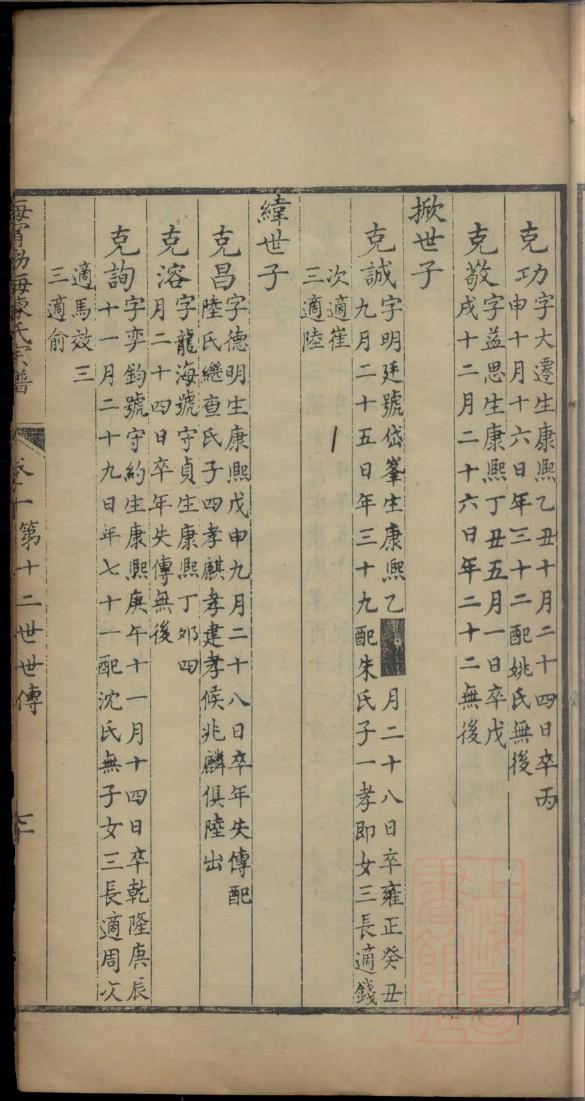 克功
字大遷生康熙乙丑十月二十四日卒丙
申十月十六日年三十二配姚氏無後
克敬
字益思生康熙丁丑五月一日卒戊
戌十二月二十六日年二十二無後
掀世子
克誠
字明廷號岱峯生康熙乙 月二十八日卒雍正癸丑
九月二十五日年三十九配朱氏子一孝即女三長適錢
次適崔
三適陸
緯世子
克昌
字德明生康熙戊申九月二十八日卒年失傳配
陸氏繼查氏子四孝麒孝建孝候兆麟俱陸出
克溶
字龍海號守貞生康熙丁夘四
月二十四日卒年失傳無後
克詢
字奕鈞號守約生康熙庚午十一月十四日卒乾隆庚辰
十一月二十九日年七十一配沈氏無子女三長適周次
適馬效三
三適俞
海寧渤海陳氏宗譜 卷十一 第十二世世傳
上海圖書館藏